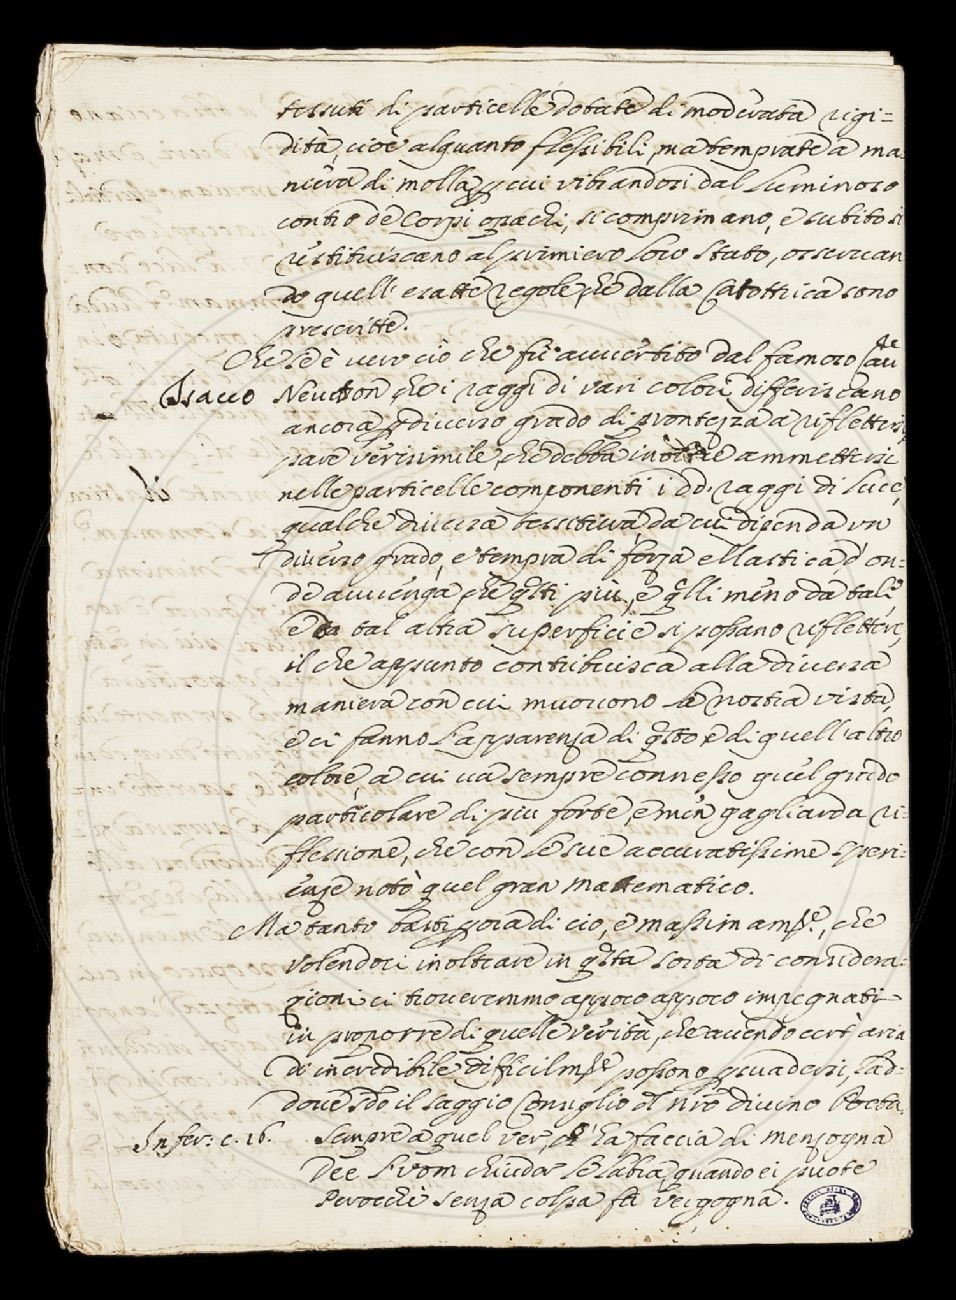 tessuti di particelle dotate di moderata rigi=
dità, cioè alquanto flessibili, ma temprate a ma=
niera di molla, p cui vibrandosi dal luminoso
contro de Corpi opachi, si comprimano, e subito si
restituiscano al primiero loro stato, osservan
do quell' esatte regole, che dalla Catottrica sono
prescritte.
Che se è vero ciò che fù avvertito dal famoso Cav.re
Isacco Neuton che i raggi di vari colori differiscano
ancora p diverso grado di prontezza a riflettersi,
pare verisimile, che debba inoltre ammettersi
nelle particelle componenti i dd. raggi di luce,
qualche diversa tessitura da cui dipenda un
diverso grado, e tempra di forza ellastica d' on=
de avvenga, che qsti più, e qlli meno da tale
e da tal altra superficie si possano riflettere,
il che appunto contribuisca alla diversa
maniera con cui muovono la nostra vista,
e ci fanno l'apparenza di qsto, e di quell' altro
colore, a cui va sempre connesso quel grado
particolare di piu forte, e men gagliarda ri=
flessione, che con le sue accuratissime speri=
enze notò quel gran matematico.
Ma tanto basti p ora di ciò, e massimamte, che
volendoci inoltrare in qsta sorta di considera=
zioni ci troveremmo appoco appoco impegnati
in proporre di quelle verità, che avendo cert' aria
d' incredibile difficilmte possono psuadersi, lad=
dove sdo il saggio Consiglio del nro divino Poeta,
Infer: c. 16. Sempre a quel ver, c' ha faccia di menzogna
Dee l' uom chiuder le labia, quando ei puote
Perocchè senza colpa fa vergogna.